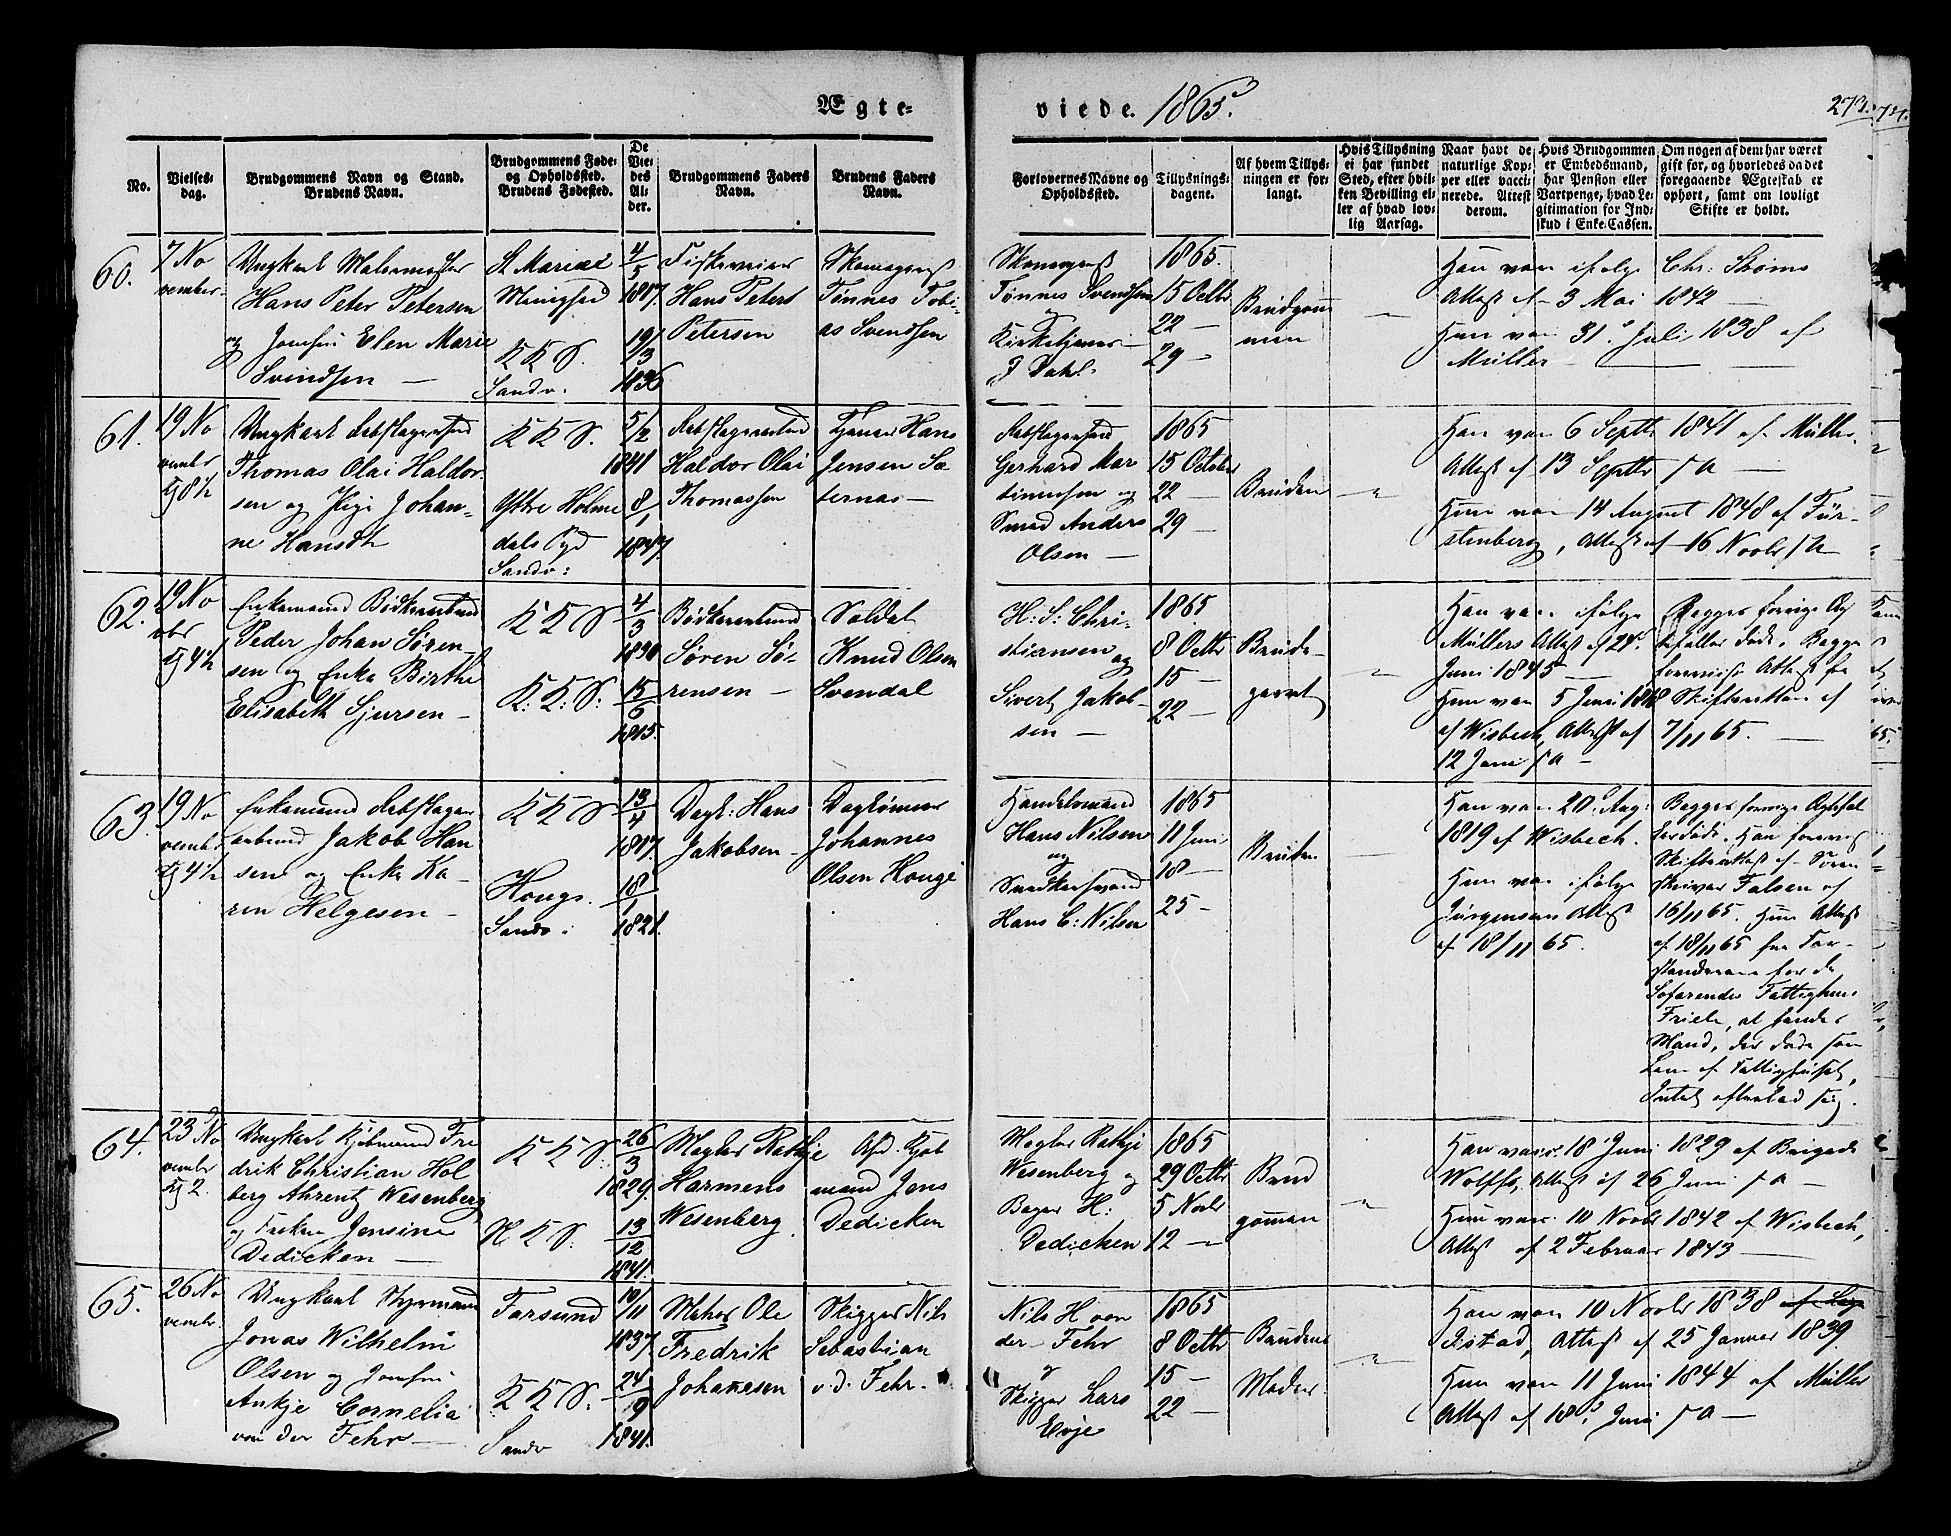 Ægte-
viede. 1865.
273.
No.
Vielses-
dag.
Brudgommens Navn og Stand.
Brudens Navn.
Brudgommens Føde-
og Opholdssted.
Brudens Fødested.
De
Vie-
des
Al-
der.
Brudgommens Faders
Navn.
Brudens Faders
Navn.
Forlovernes Navne og
Opholdssted.
Tillysnings-
dagene.
Af hvem Tillys-
ningen er for-
langt.
Hvis Tillysning
ei har fundet
Sted, efter hvil-
ken Bevilling el-
ler af hvad lov-
lig Aarsag.
Naar havt de
naturlige Kop-
per eller vacci-
nerede. Attest
derom.
Hvis Brudgommen
er Embedsmand,
har Pension eller
Vartpenge, hvad Le-
gitimation for Ind-
skud i Enke-Cassen.
Om nogen af dem har været
gift før, og hvorledes da det
foregaaende Ægteskab er
ophørt, samt om lovligt
Skifte er holdt.
60.
7 No
vember
Ungkarl Malermester
Hans Peter Petersen
og Jomfru Elen Marie
Svendsen —
St. Mariæ
Menighed
K K S.
Sandv:
4/5
1807.
19/3
1836
Hans Peter
Petersen
Skomagerm
Tønnes Tobi-
as Svendsen
Tønnes Svendsen
og
Kirketjener
J Dahl.
1865.
15 Octbr
22 —
29 —
Brudgom
men
Han var ifølge Chr: Strøms
Attest af 3 Mai 1842 —
Hun var 31 Juli 1838 af
Müller —
61.
19 No
vember
Kl 8½
Ungkarl Rebslagersvend
Thomas Olai Haldor-
sen og Pige Johan-
ne Hansdtr
K K S.
Yttre Holme
dals Pgd
Sandv:
5/2
1841
8/1
1847.
Rebslagersvend
Haldor Olai
Thomassen
Hans
Jensen Sæ-
ternæs —
Rebslagersvend
Gerhard Mar
tinussen og
Smed Anders
Olsen —
1865
15 October
22 —
29 —
Bruden
Han var 6 Septbr 1841 af Müller.
Attest af 13 Septbr s a —
Hun var 14 August 1848 af Für-
stenberg, Attest af 16 Novbr s a
62.
19 No
vbr
Kl 4½
Enkemand Bødkersvend
Peder Johan Søren-
sen og Enke Birthe
Elisabeth Sjursen —
K K S
K: K: S:
4/3
1830
15/6
1815.
Bødkersvend
Søren Sø-
rensen —
Soldat
Knud Olsen
Svendal
H: S: Chri-
stiansen og
Sivert Jakob-
sen —
1865.
8 Octbr
15 —
22 —
Brude-
parret
Han var ifølge
Müllers Attest af 24
Juni 1845 —
Hun var 5 Juni 1818
af Wisbech, Attest af
12 Juni s a —
Begges forrige Æg
tefæller døde. Begge
foreviste Attest fra
Skifteretten af
7/11 65. —
63.
19 No
vember
Kl 4½
Enkemand Rebslager
svend Jakob Han
sen og Enke Ka-
ren Helgesen —
K K S
Hougs.
Sandv:
13/4
1807.
18/1
1821.
Dagk: Hans
Jakobsen —
Daglønner
Johannes
Olsen Houge
Handelsmand
Hans Nilsen
og
Snedkersvend
Hans C: Nilsen
1865
11 Juni
18 —
25 —
Bruden
Han var 20 Aug.
1819 af Wisbech.
Hun var ifølge
Jürgensens Attest
af 18/11 65.
Begges forrige Ægtefæl
ler døde. Han foreviste
Skifteattest af Soren
skriver Falsen af
16/11 65. Hun Attest
af 18/11 65 fra For-
standeren for de
Søfarendes Fattighuus
Friele, at hendes
Mand, der døde som
Lem af Fattighuset,
Intet efterlod sig.
64.
23 No
vember
Kl 2.
Ungkarl Kjøbmand Fre
drik Christian Hol
berg Ahrentz Wesenberg
og Frøken Jensine
Dedicken —
K K S
N. K S.
26/3
1829.
13/12
1841.
Mægler Rathje
Harmens
Wesenberg.
Afd. Kjøb
mand Jens
Dedicken
Mægler Rathje
Wesenberg og
Bager H:
Dedicken
1865
29 Octbr
5 Novbr
12 —
Brud
gommen
Han var 18 Juni 1829 af Brigade
Wolffs, Attest af 26 Juni s a —
Hun var 10 Novbr 1842 af Wisbech,
Attest af 2 Februar 1843 —
65.
26 No
vember
Ungkarl Styrmand
Jonas Wilhelm
Olsen og Jomfru
Ankje Cornelia
von der Fehr —
Farsund
K K S.
Sandv
10/11
1837.
24/9
1841.
Ole
Fredrik
Johannesen
Skipper Nils
Sebastian
v. d. Fehr.
Nils H von
der Fehr
og
Skipper Lars
Evje
1865
8 Octbr
15 —
22 —
Brudens
Moder
Han var 10 Novbr 1838
Attest af 25 Januar 1839.
Hun var 11 Juni 1844 af Müller
Attest af 18 Juni s a —